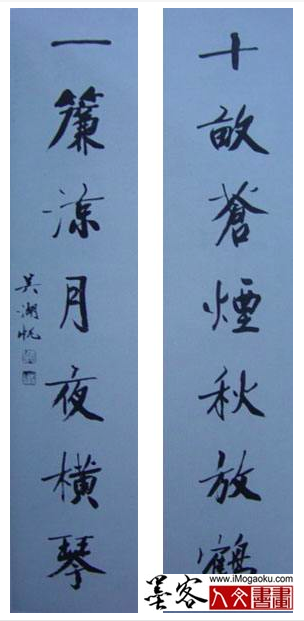 十畝蒼煙秋放鶴
一簾涼月夜橫琴
吳湖帆
墨客
www.iMogaoku.com
人文書畫